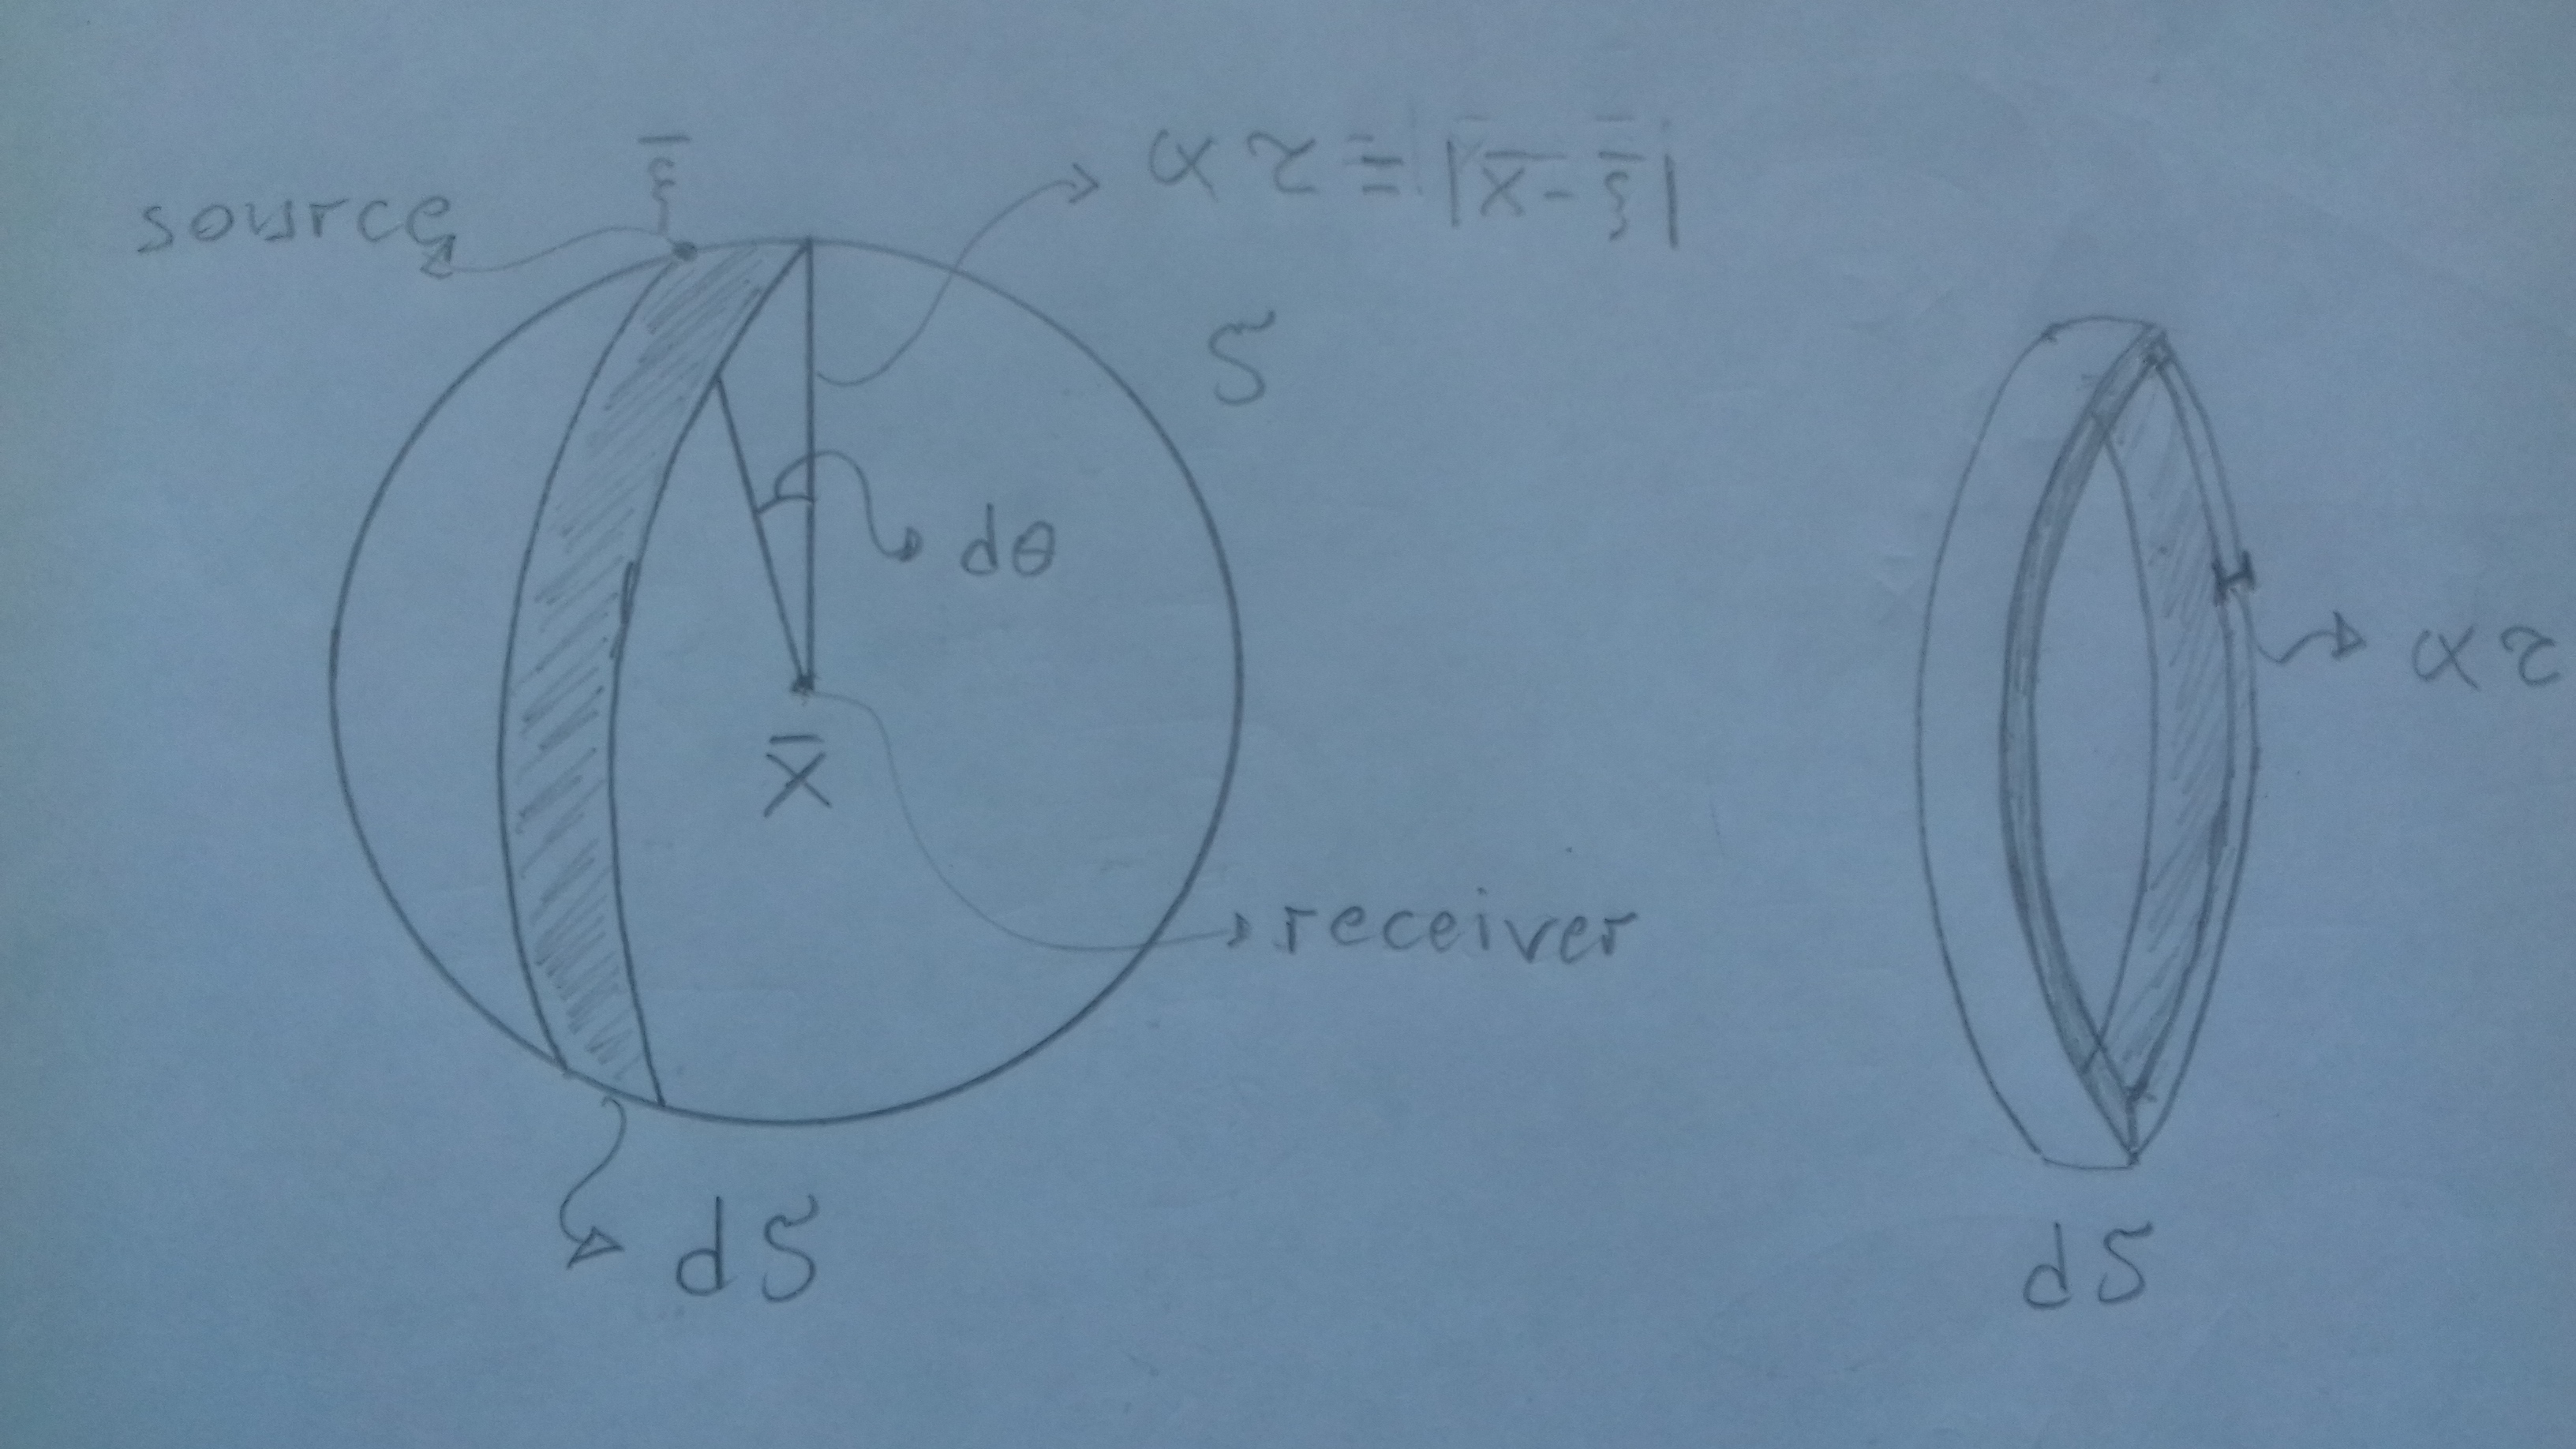 ξ̄
source
ατ = |x̄-ξ̄|
S
dθ
x̄
receiver
dS
ατ
dS